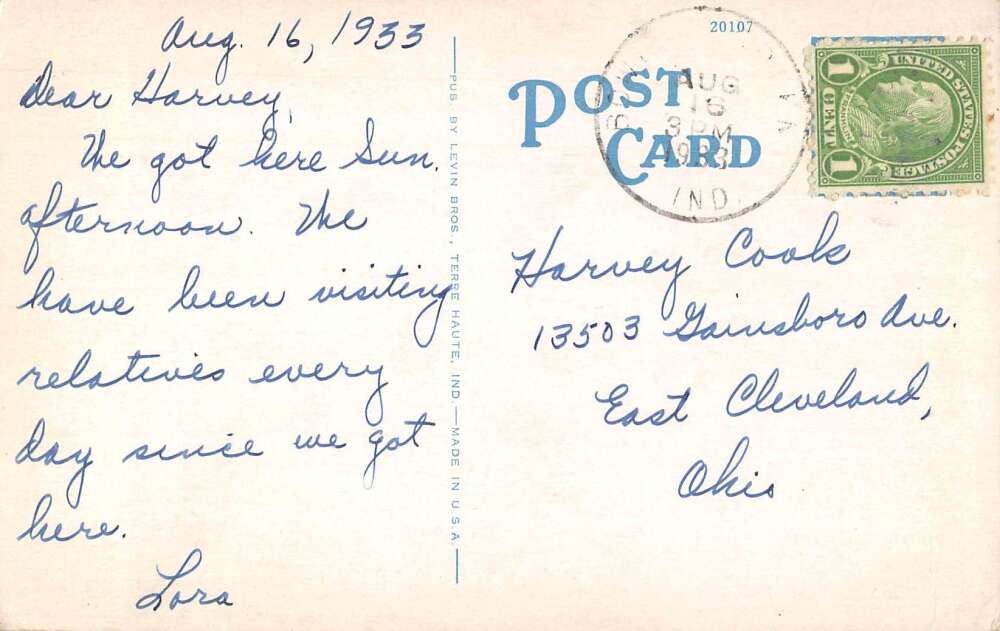 Aug. 16, 1933
Dear Harvey,
We got here Sun.
afternoon. We
have been visiting
relatives every
day since we got
here.
Lora
PUB. BY LEVIN BROS., TERRE HAUTE, IND.—MADE IN U.S.A
20107
POST
CARD
AUG
16
3 PM
1933
IND.
UNITED STATES POSTAGE
1 CENT 1
Harvey Cook
13503 Gainsboro Ave.
East Cleveland,
Ohio